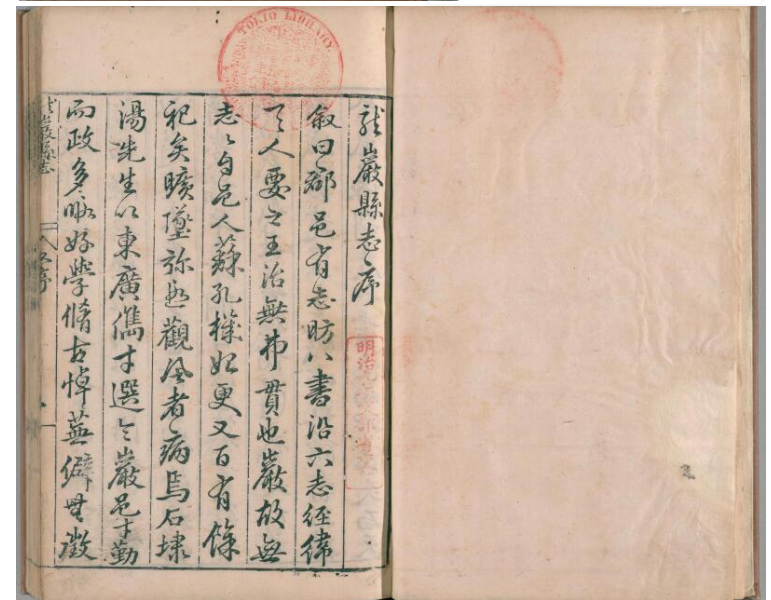 龍巖縣志序
叙曰郡邑有志昉八書沿六志經緯
天人要之王治無弗貫也巖故無
志〻自邑人蘇孔機始更又百有餘
祀矣曠墜弥觀風者病焉石埭
湯先生以東廣儁才選令巖邑才勤
而政多暇好學脩古悼蕪僻無徵
龍巖縣志
序
TOKIO LIBRARY
明治